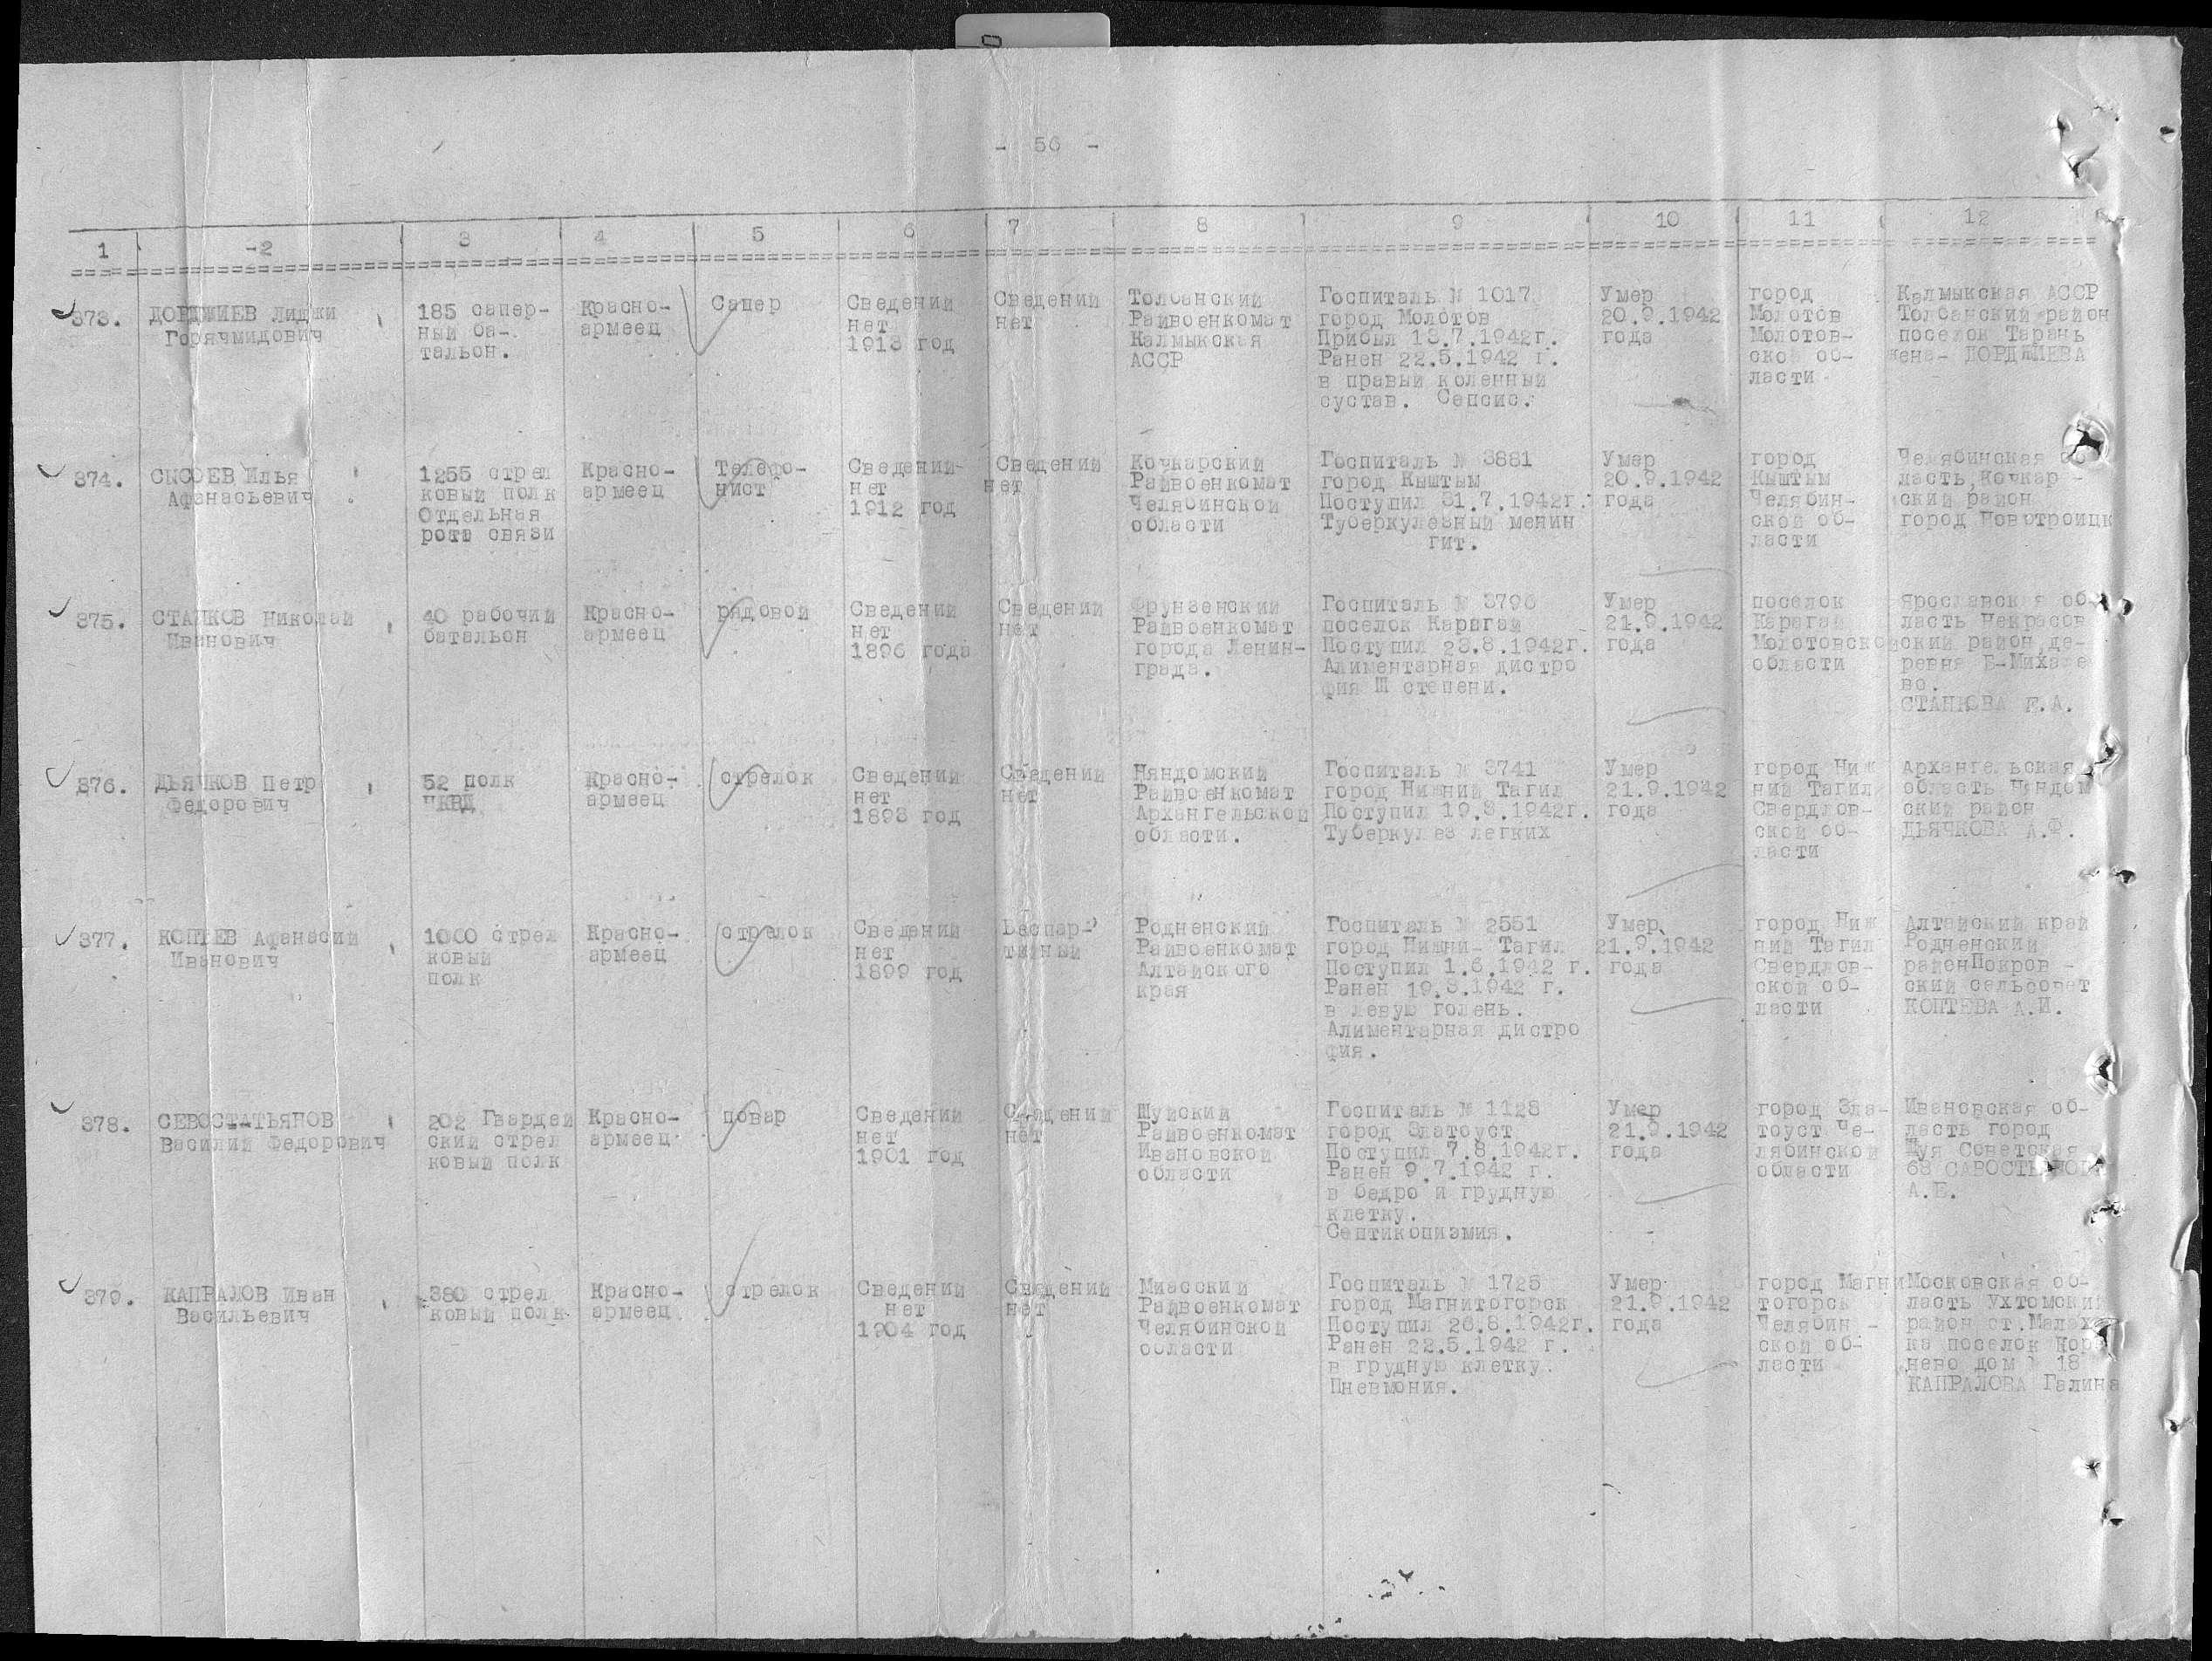 - 56 -
1 2 3 4 5 6 7 8 9 10 11 12
373.
ДОРДЖИЕВ Лиджи
Горячмидович
185 сапер-
ный ба-
тальон.
Красно-
армеец
Сапер
Сведений
нет
1913 год
Сведений
нет
Толбанский
Райвоенкомат
Калмыкская
АССР
Госпиталь № 1017
город Молотов
Прибыл 13.7.1942г.
Ранен 22.5.1942 г.
в правый коленный
сустав. Сепсис.
Умер
20.9.1942
года
город
Молотов
Молотов-
ской об-
ласти
Калмыкская АССР
Толбанский район
поселок Тарань
жена- ДОРДЖИЕВА
374.
СЫСОЕВ Илья
Афанасьевич
1255 стрел
ковый полк
Отдельная
рота связи
Красно-
армеец
Телефо-
нист
Сведений
нет
1912 год
Сведений
нет
Кочкарский
Райвоенкомат
Челябинской
области
Госпиталь № 3881
город Кыштым
Поступил 31.7.1942г.
Туберкулезный менин
гит.
Умер
20.9.1942
года
город
Кыштым
Челябин-
ской об-
ласти
Челябинская
ласть, Кочкар -
ский район
город Новотроицк
375.
СТАНКОВ Николай
Иванович
40 рабочий
батальон
Красно-
армеец
рядовой
Сведений
нет
1896 года
Сведений
нет
Фрунзенский
Райвоенкомат
города Ленин-
града.
Госпиталь № 3796
поселок Карагай
Поступил 23.8.1942г.
Алиментарная дистро
фия Ш степени.
Умер
21.9.1942
года
поселок
Карагай
Молотовской
области
Ярославская об-
ласть Некрасов
ский район, де-
ревня Б-Михале
во.
СТАНКОВА Е.А.
376.
ДЬЯЧКОВ Петр
Федорович
52 полк
НКВД
Красно-
армеец
стрелок
Сведений
нет
1898 год
Сведений
нет
Няндомский
Райвоенкомат
Архангельской
области.
Госпиталь № 3741
город Нижний Тагил
Поступил 19.8.1942г.
Туберкулез легких
Умер
21.9.1942
года
город Ниж
ний Тагил
Свердлов-
ской об-
ласти
Архангельская
область Няндом
ский район
ДЬЯЧКОВА А.Ф.
377.
КОПТЕВ Афанасий
Иванович
1000 стрел
ковый
полк
Красно-
армеец
стрелок
Сведений
нет
1899 год
Беспар-
тийный
Родненский
Райвоенкомат
Алтайского
края
Госпиталь № 2551
город Нижний Тагил
Поступил 1.6.1942 г.
Ранен 19.3.1942 г.
в левую голень.
Алиментарная дистро
фия.
Умер
21.9.1942
года
город Ниж
ний Тагил
Свердлов-
ской об-
ласти
Алтайский край
Родненский
районПокров -
ский сельсовет
КОПТЕВА А.И.
378.
СЕВОСТАТЬЯНОВ
Василий Федорович
202 Гвардей
ский стрел
ковый полк
Красно-
армеец
повар
Сведений
нет
1901 год
Сведений
нет
Шуйский
Райвоенкомат
Ивановской
области
Госпиталь № 1128
город Златоуст
Поступил 7.8.1942г.
Ранен 9.7.1942 г.
в бедро и грудную
клетку.
Септикопиэмия.
Умер
21.9.1942
года
город Зла-
тоуст Че-
лябинской
области
Ивановская об-
ласть город
Шуя Советская
68
А.Е.
379.
КАПРАЛОВ Иван
Васильевич
380 стрел
ковый полк
Красно-
армеец
стрелок
Сведений
нет
1904 год
Сведений
нет
Миасский
Райвоенкомат
Челябинской
области
Госпиталь № 1725
город Магнитогорск
Поступил 26.8.1942г.
Ранен 22.5.1942 г.
в грудную клетку.
Пневмония.
Умер
21.9.1942
года
город Магни
тогорск
Челябин -
ской об-
ласти
Московская об-
ласть Ухтомский
район ст.Малахо
ка поселок Коре
нево дом 18
КАПРАЛОВА Галина